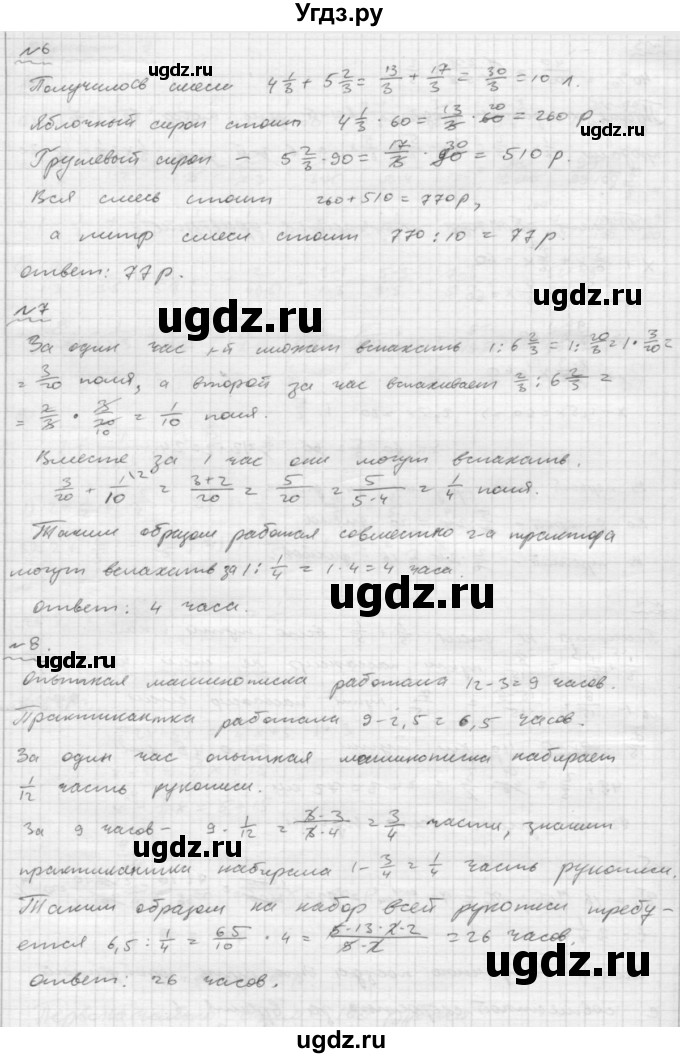 Угдз.ру
№6
Получилось смеси 4 1/3 + 5 2/3 = 13/3 + 17/3 = 30/3 = 10 л.
Яблочный сироп стоит 4 1/3 · 60 = 13/3 · 60 20 = 260 р.
Грушевый сироп – 5 2/3 · 90 = 17/3 · 90 30 = 510 р.
Вся смесь стоит 260+510=770р,
а литр смеси стоит 770 : 10 = 77 р.
ответ: 77 р.
№7
ugdz.ru ugdz.ru
За один час 1-й может вспахать 1 : 6 2/3 = 1 : 20/3 = 1 · 3/20 =
= 3/20 поля, а второй за час вспахивает 2/3 : 6 2/3 =
= 2/3 · 3/20 10 = 1/10 поля.
Вместе за 1 час они могут вспахать.
3/20 + 1/10 \2 = 3+2/20 = 5/20 = 5/5·4 = 1/4 поля.
Таким образом работая совместно 2-а трактора
могут вспахать за 1 : 1/4 = 1 · 4 = 4 часа.
ugdz.ru
ответ: 4 часа.
№8.
ugdz.ru
опытная машинописка работала 12-3=9 часов.
Практикантка работала 9-2,5=6,5 часов.
За один час опытная машинописка набирает
1/12 часть рукописи.
За 9 часов – 9 · 1/12 = 3·3/3·4 = 3/4 части, значит
ugdz.ru
практикантка набирала 1 - 3/4 = 1/4 часть рукописи.
Таким образом на набор всей рукописи требу-
ется 6,5 : 1/4 = 65/10 · 4 = 5·13·2·2/5·2 = 26 часов.
ugdz.ru
ответ: 26 часов.
ugdz.ru ugdz.ru